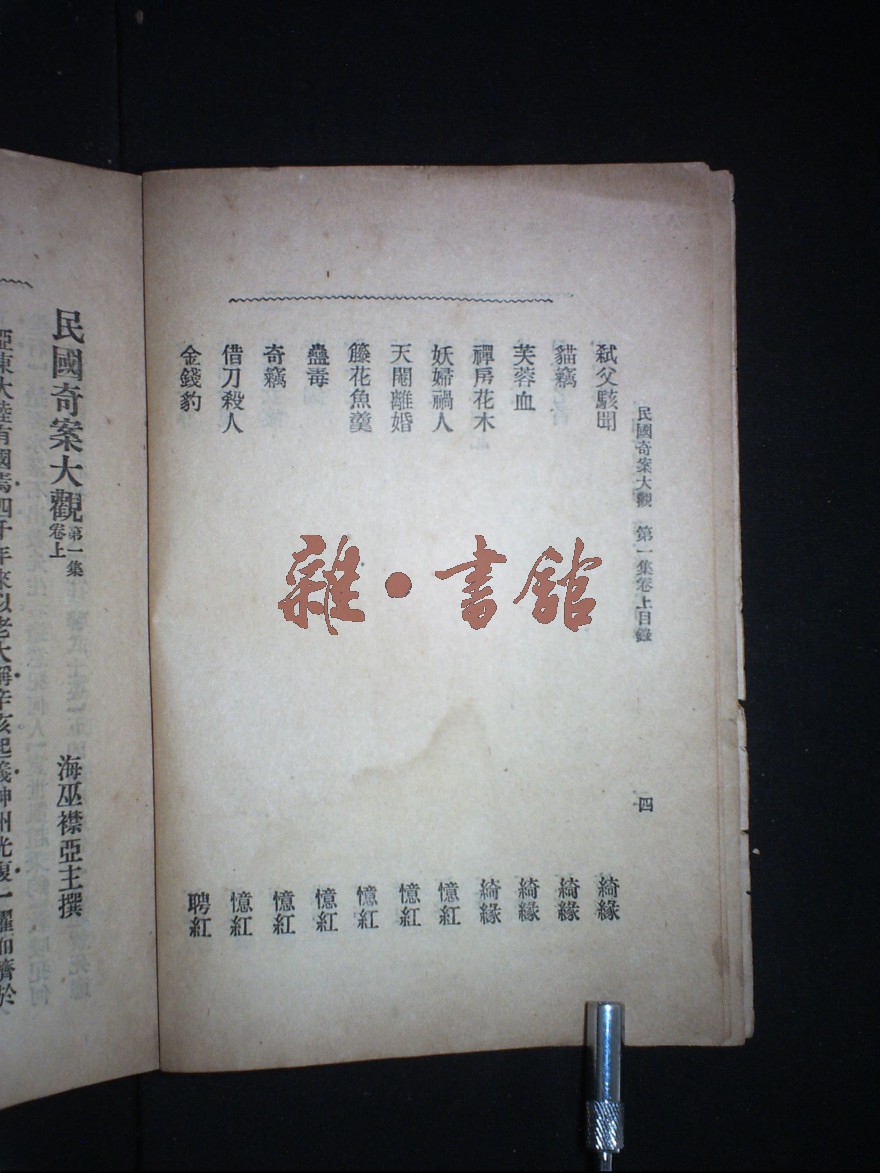 民國奇案大觀　第一集卷上目錄　四
弒父駭聞　綺緣
貓竊　綺緣
芙蓉血　綺緣
禪房花木　綺緣
妖婦禍人　憶紅
天閹離婚　憶紅
籐花魚羹　憶紅
蠱毒　憶紅
奇竊　憶紅
借刀殺人　憶紅
金錢豹　聘紅
雜·書館
民國奇案大觀 第一集 卷上　海巫襟亞主撰
亞東大陸有國焉四千年來以老大稱辛亥起義神州光復一躍而躋於